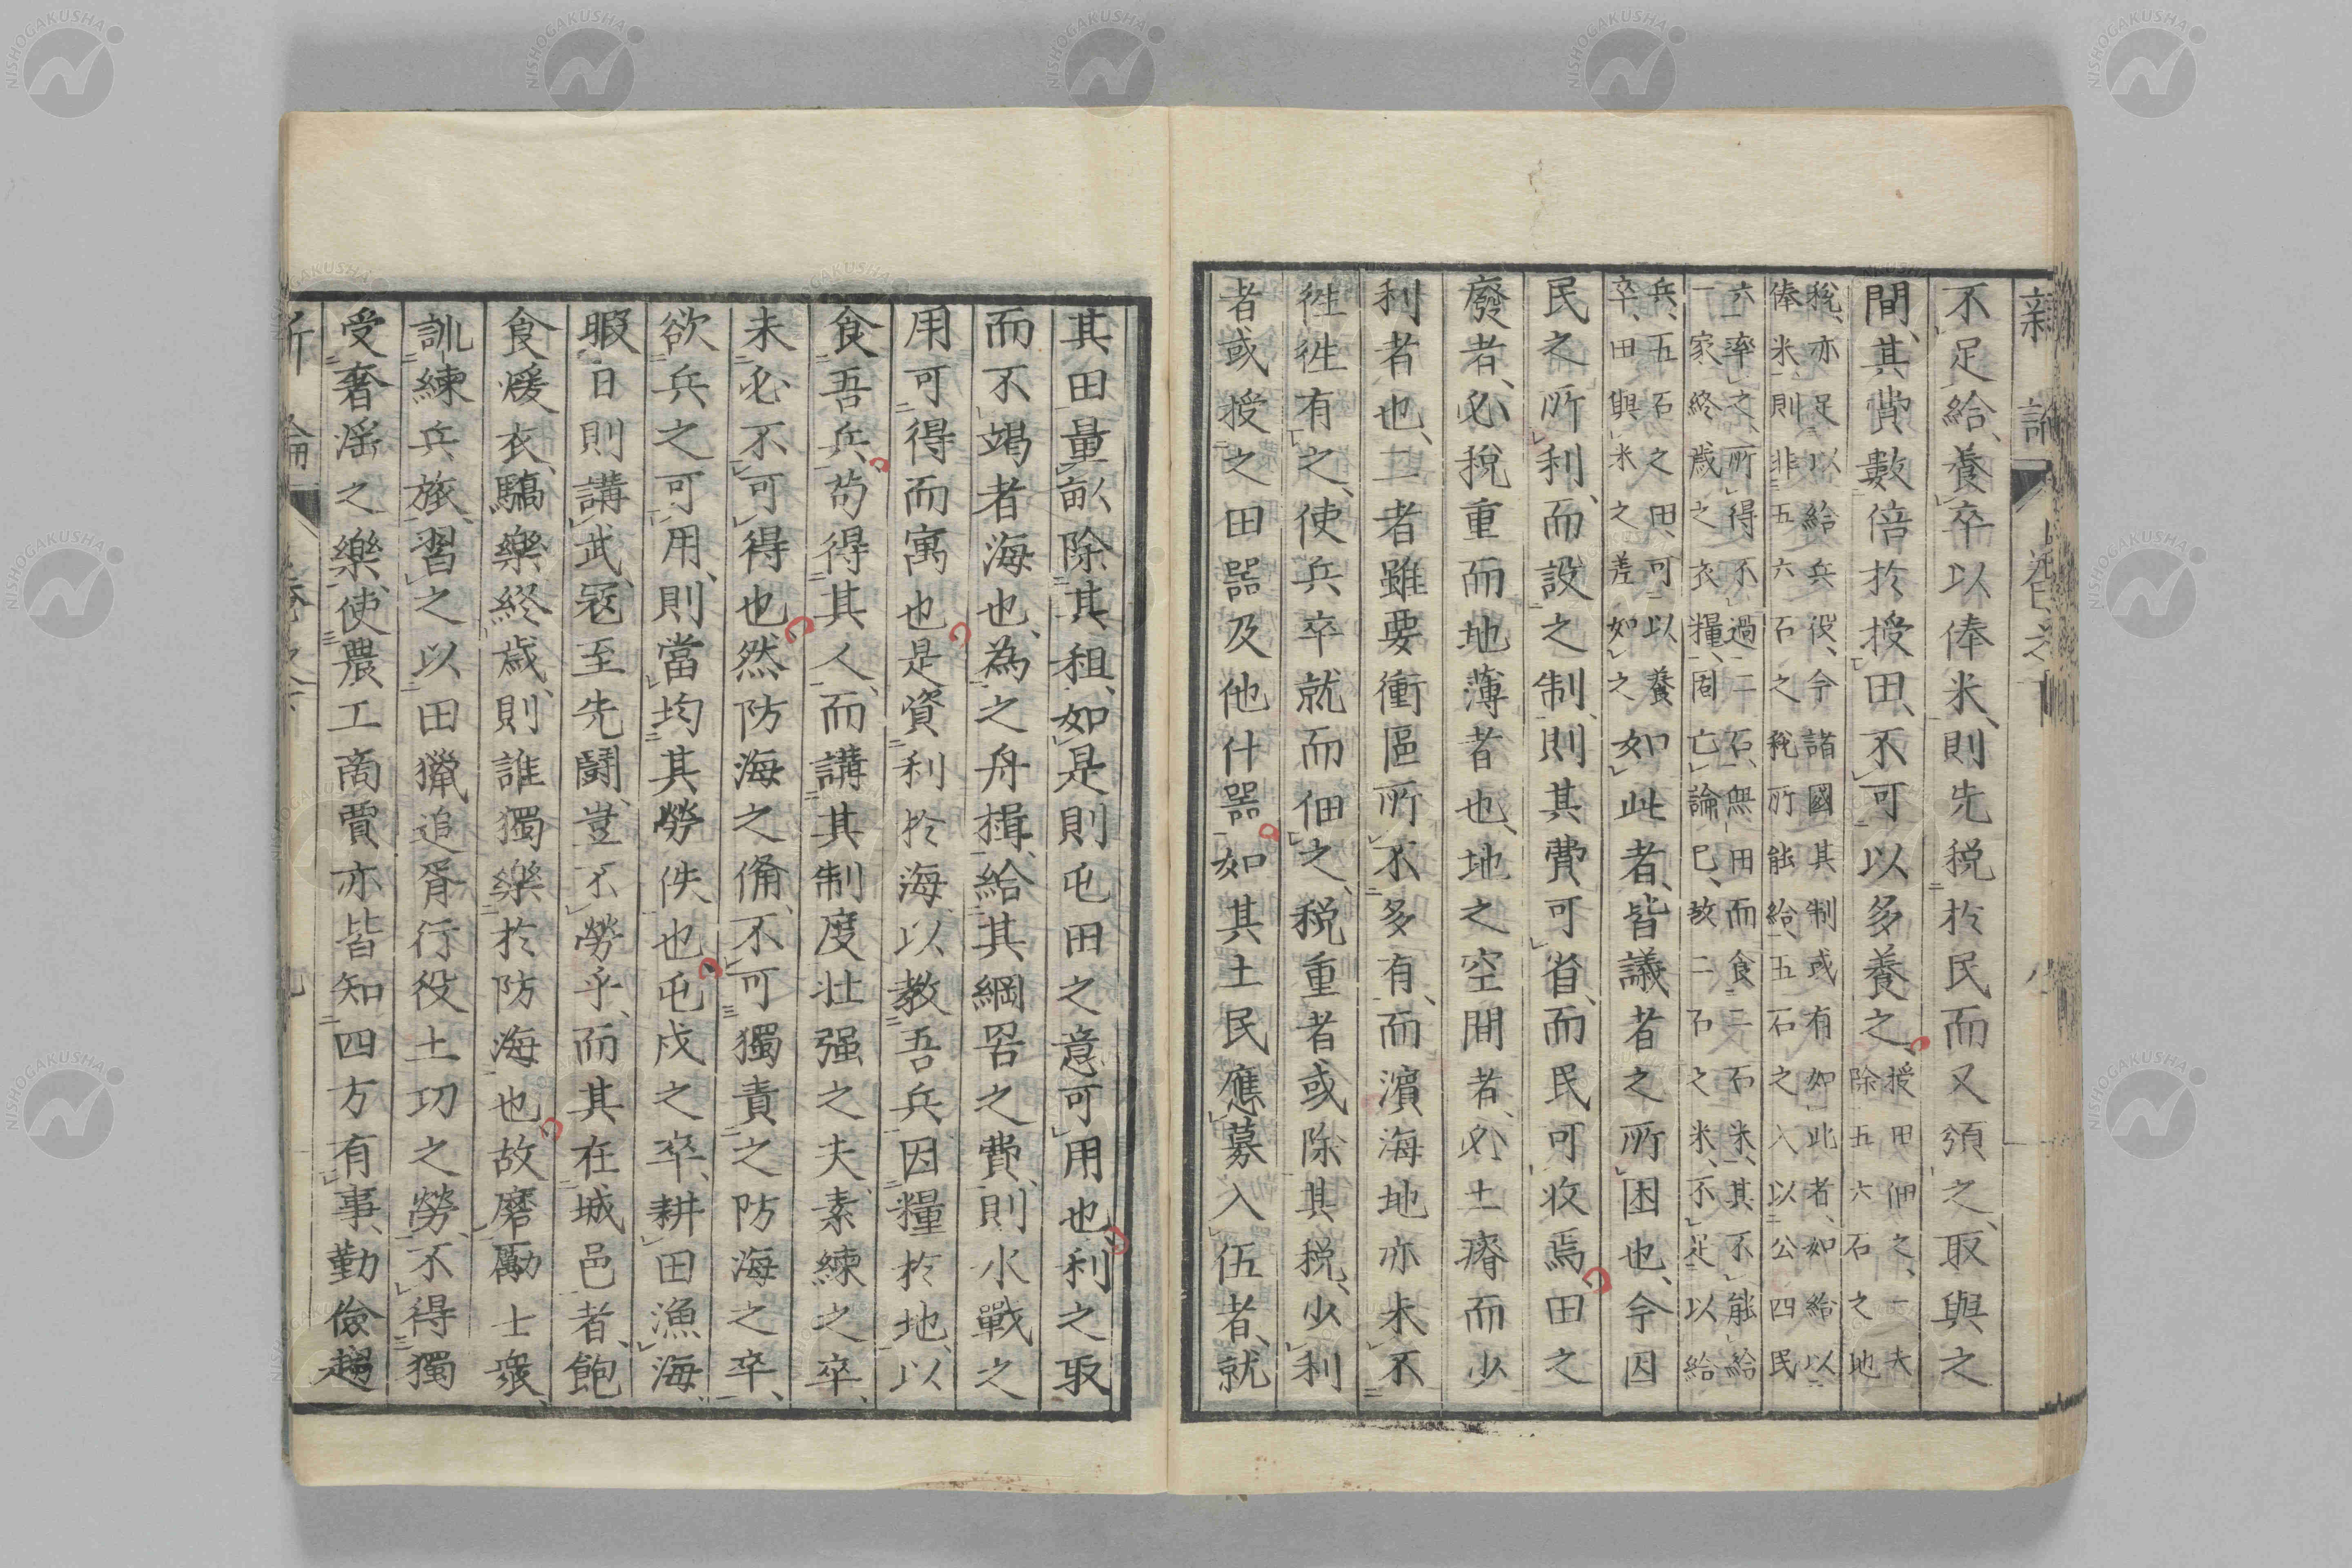 新論 卷之 八
不足給、養卒以俸米、則先税於民而又須之、取與之
間、其費數倍於授田、不可以多養之、授田佃之、一夫
除五六石之地
税、亦足以給兵役、今諸國其制或有如此者、如給以
俸米、則非五六石之税所能給、五石之入以公四民
六率之、所得不過二石、無田而食二石米、其不能給
一家終歳之衣糧、固亡論已、故二石之米、不足以給
兵、五石之田、可以養
卒、田與米之差如之
如此者、皆議者之所困也、今因
民之所利、而設之制、則其費可省、而民可收焉田之
廢者、必税重而地薄者也、地之空閒者、必土瘠而少
利者也、二者雖要衝區所不多有、而濱海地亦未不
徃徃有之、使兵卒就而佃之、税重者或除其税、少利
者或授之田器及他什器如其土民應募入伍者、就
其田量畝除其租、如是則屯田之意可用也、利之取
而不竭者海也、為之舟楫、給其網罟之費、則水戰之
用可得而寓也是資利於海、以教吾兵、因糧於地、以
食吾兵、苟得其人、而講其制度壮强之夫、素練之卒、
未必不可得也然防海之備、不可獨責之防海之卒、
欲兵之可用、則當均其勞佚也屯戍之卒、耕田漁海、
暇日則講武、冦至先鬪、豈不勞乎、而其在城邑者、飽
食煖衣、驕樂終歳、則誰獨樂於防海也故磨勵士衆、
訓練兵旅、習之以田獵追胥行役土功之勞、不得獨
受奢滛之樂、使農工商賈亦皆知四方有事、勤儉趨
新論 卷之 九